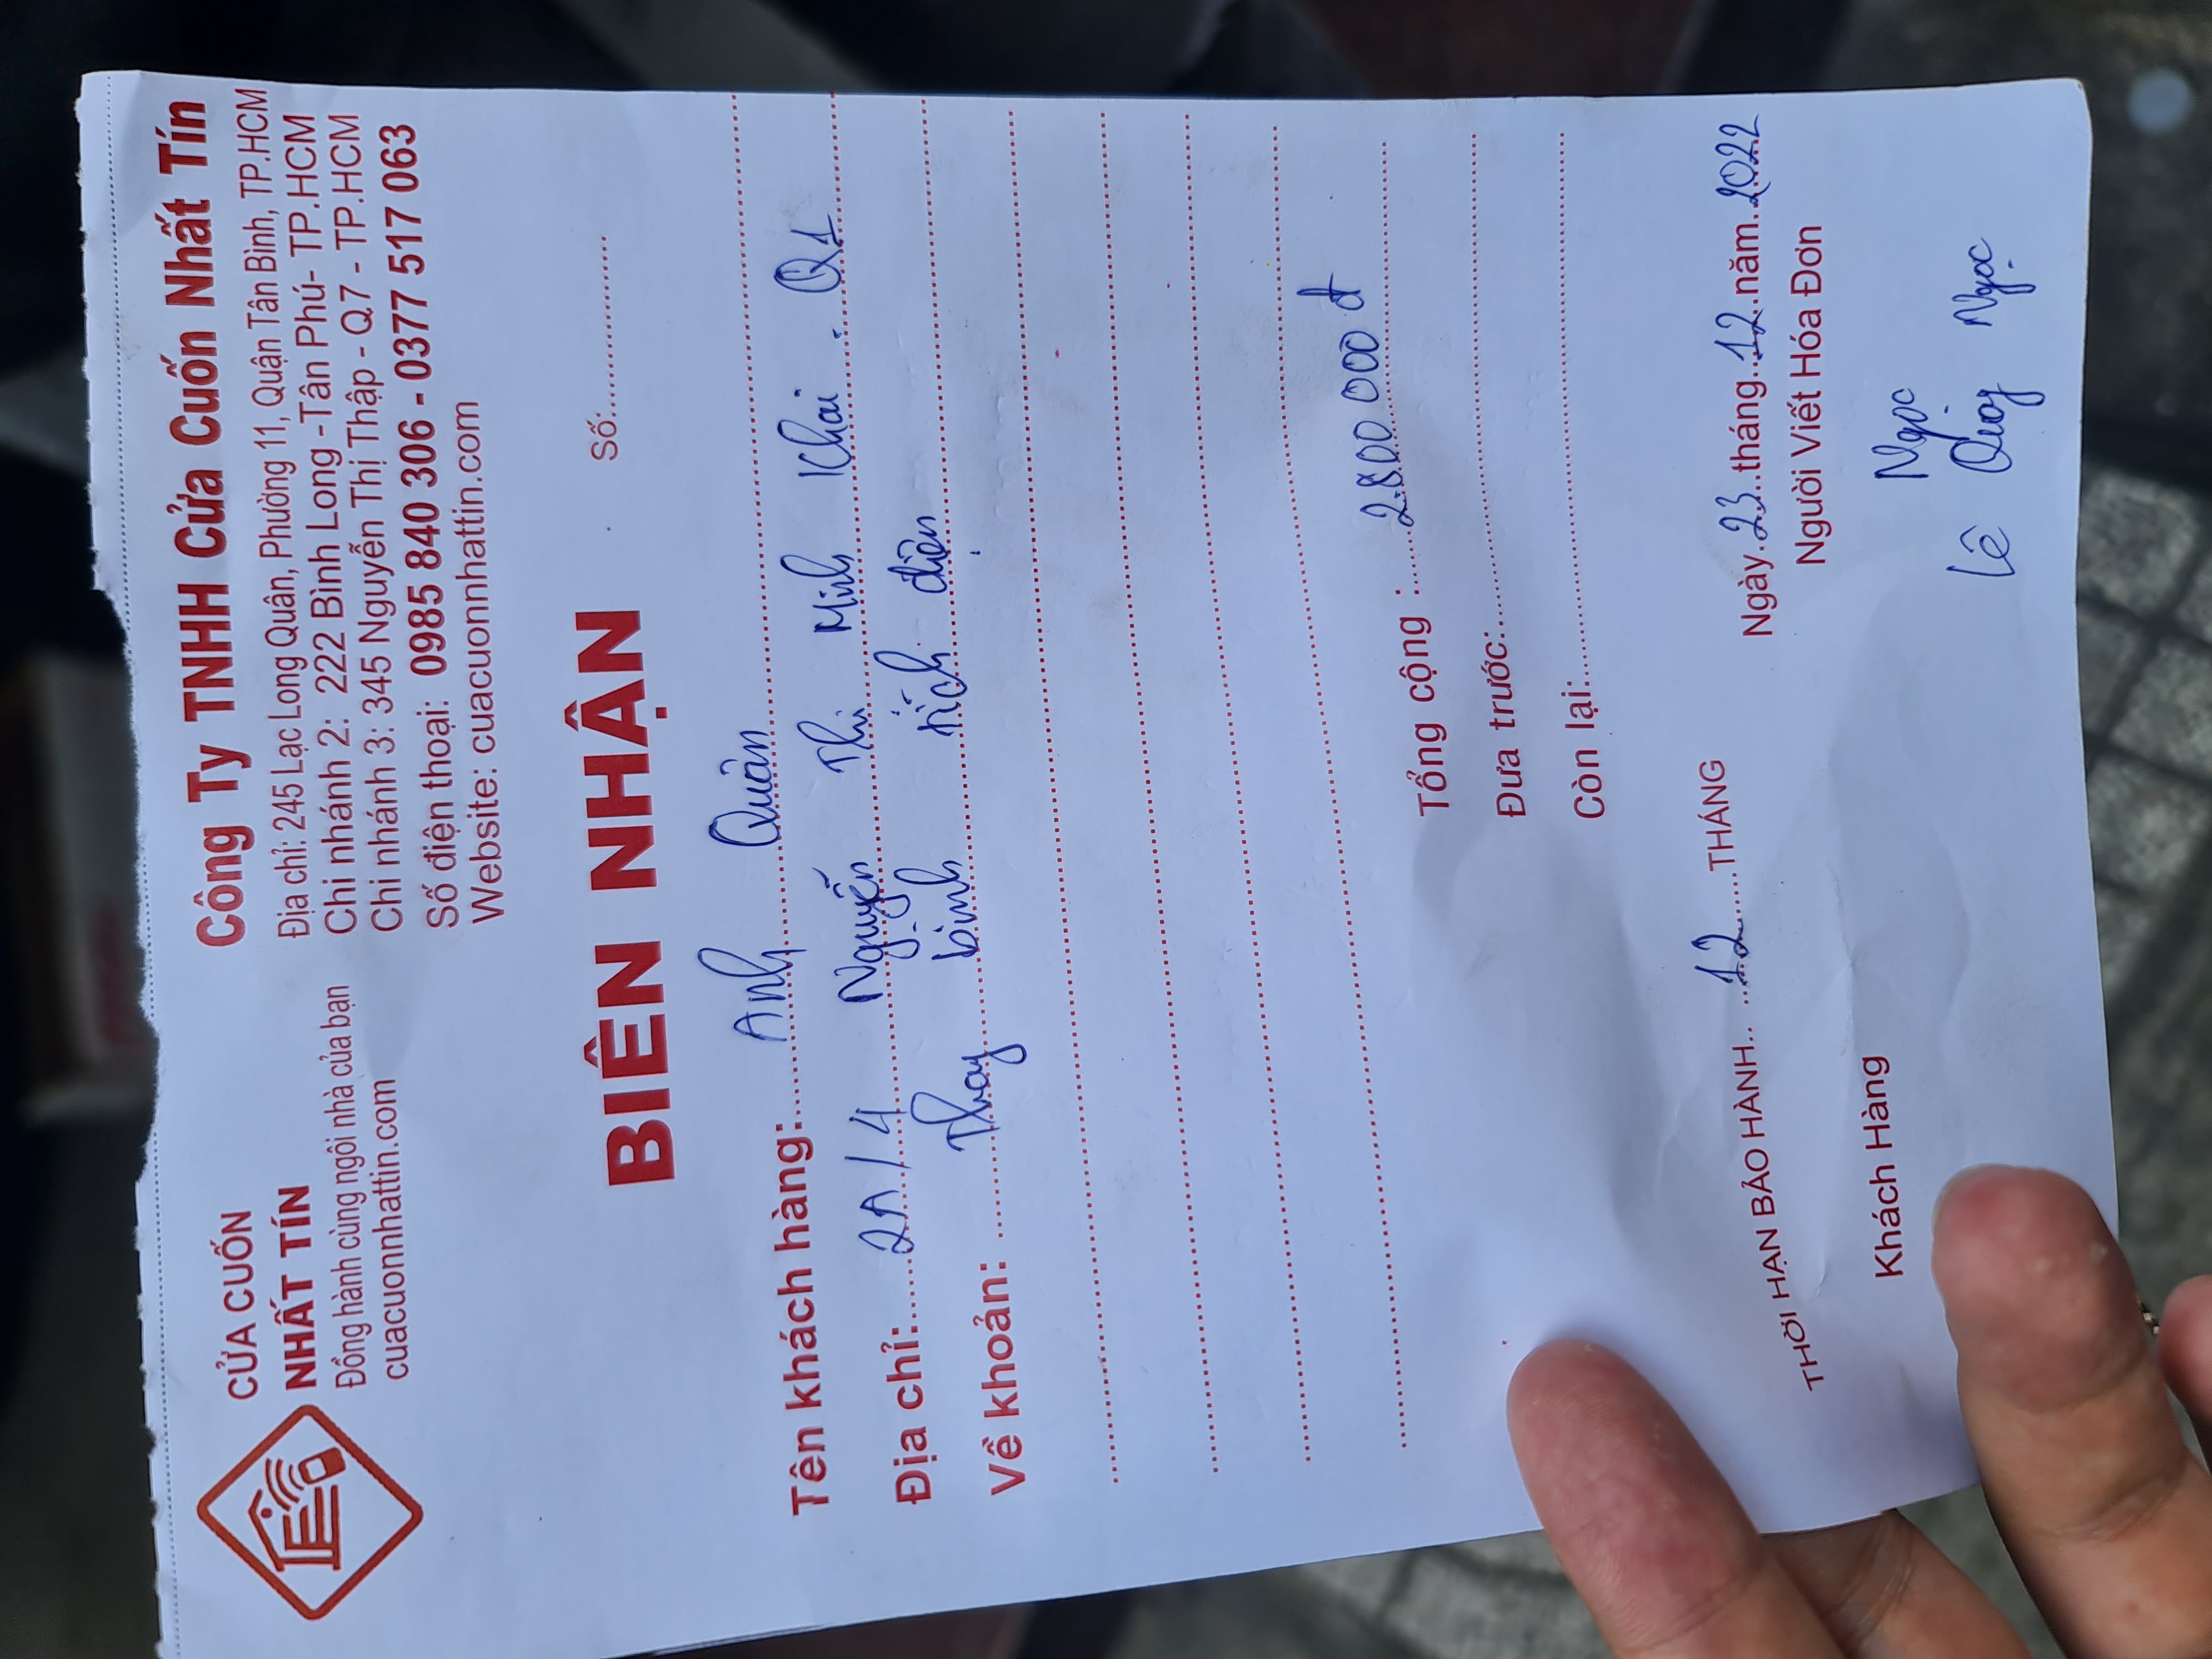 CỬA CUỐN
NHẤT TÍN
Đồng hành cùng ngôi nhà của bạn
cuacuonnhattin.com
Công Ty TNHH Cửa Cuốn Nhất Tín
Địa chỉ: 245 Lạc Long Quân, Phường 11, Quận Tân Bình, TP.HCM
Chi nhánh 2: 222 Bình Long -Tân Phú- TP.HCM
Chi nhánh 3: 345 Nguyễn Thị Thập - Q7 - TP.HCM
Số điện thoại: 0985 840 306 - 0377 517 063
Website: cuacuonnhattin.com
BIÊN NHẬN
Số:
Tên khách hàng: Anh Quân
Địa chỉ: 2A/4 Nguyễn Thị Minh Khai. Q1
Về khoản: Thay bình tích điện
Tổng cộng : 2800 000 đ
Đưa trước:
Còn lại:
THỜI HẠN BẢO HÀNH.. 12 THÁNG
Ngày 23 tháng 12 năm 2022
Khách Hàng
Người Viết Hóa Đơn
Ngọc
Lê Quảng Ngọc